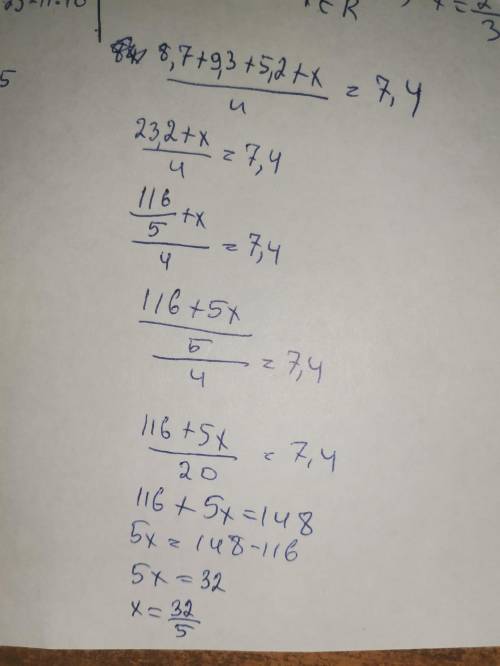 ∈R , x=2/3
5
8,7+9,3+5,2+x/4 = 7,4
23,2+x/4 = 7,4
116/5+x/4 = 7,4
116+5x/5/4 = 7,4
116+5x/20 = 7,4
116+5x=148
5x=148-116
5x=32
x=32/5